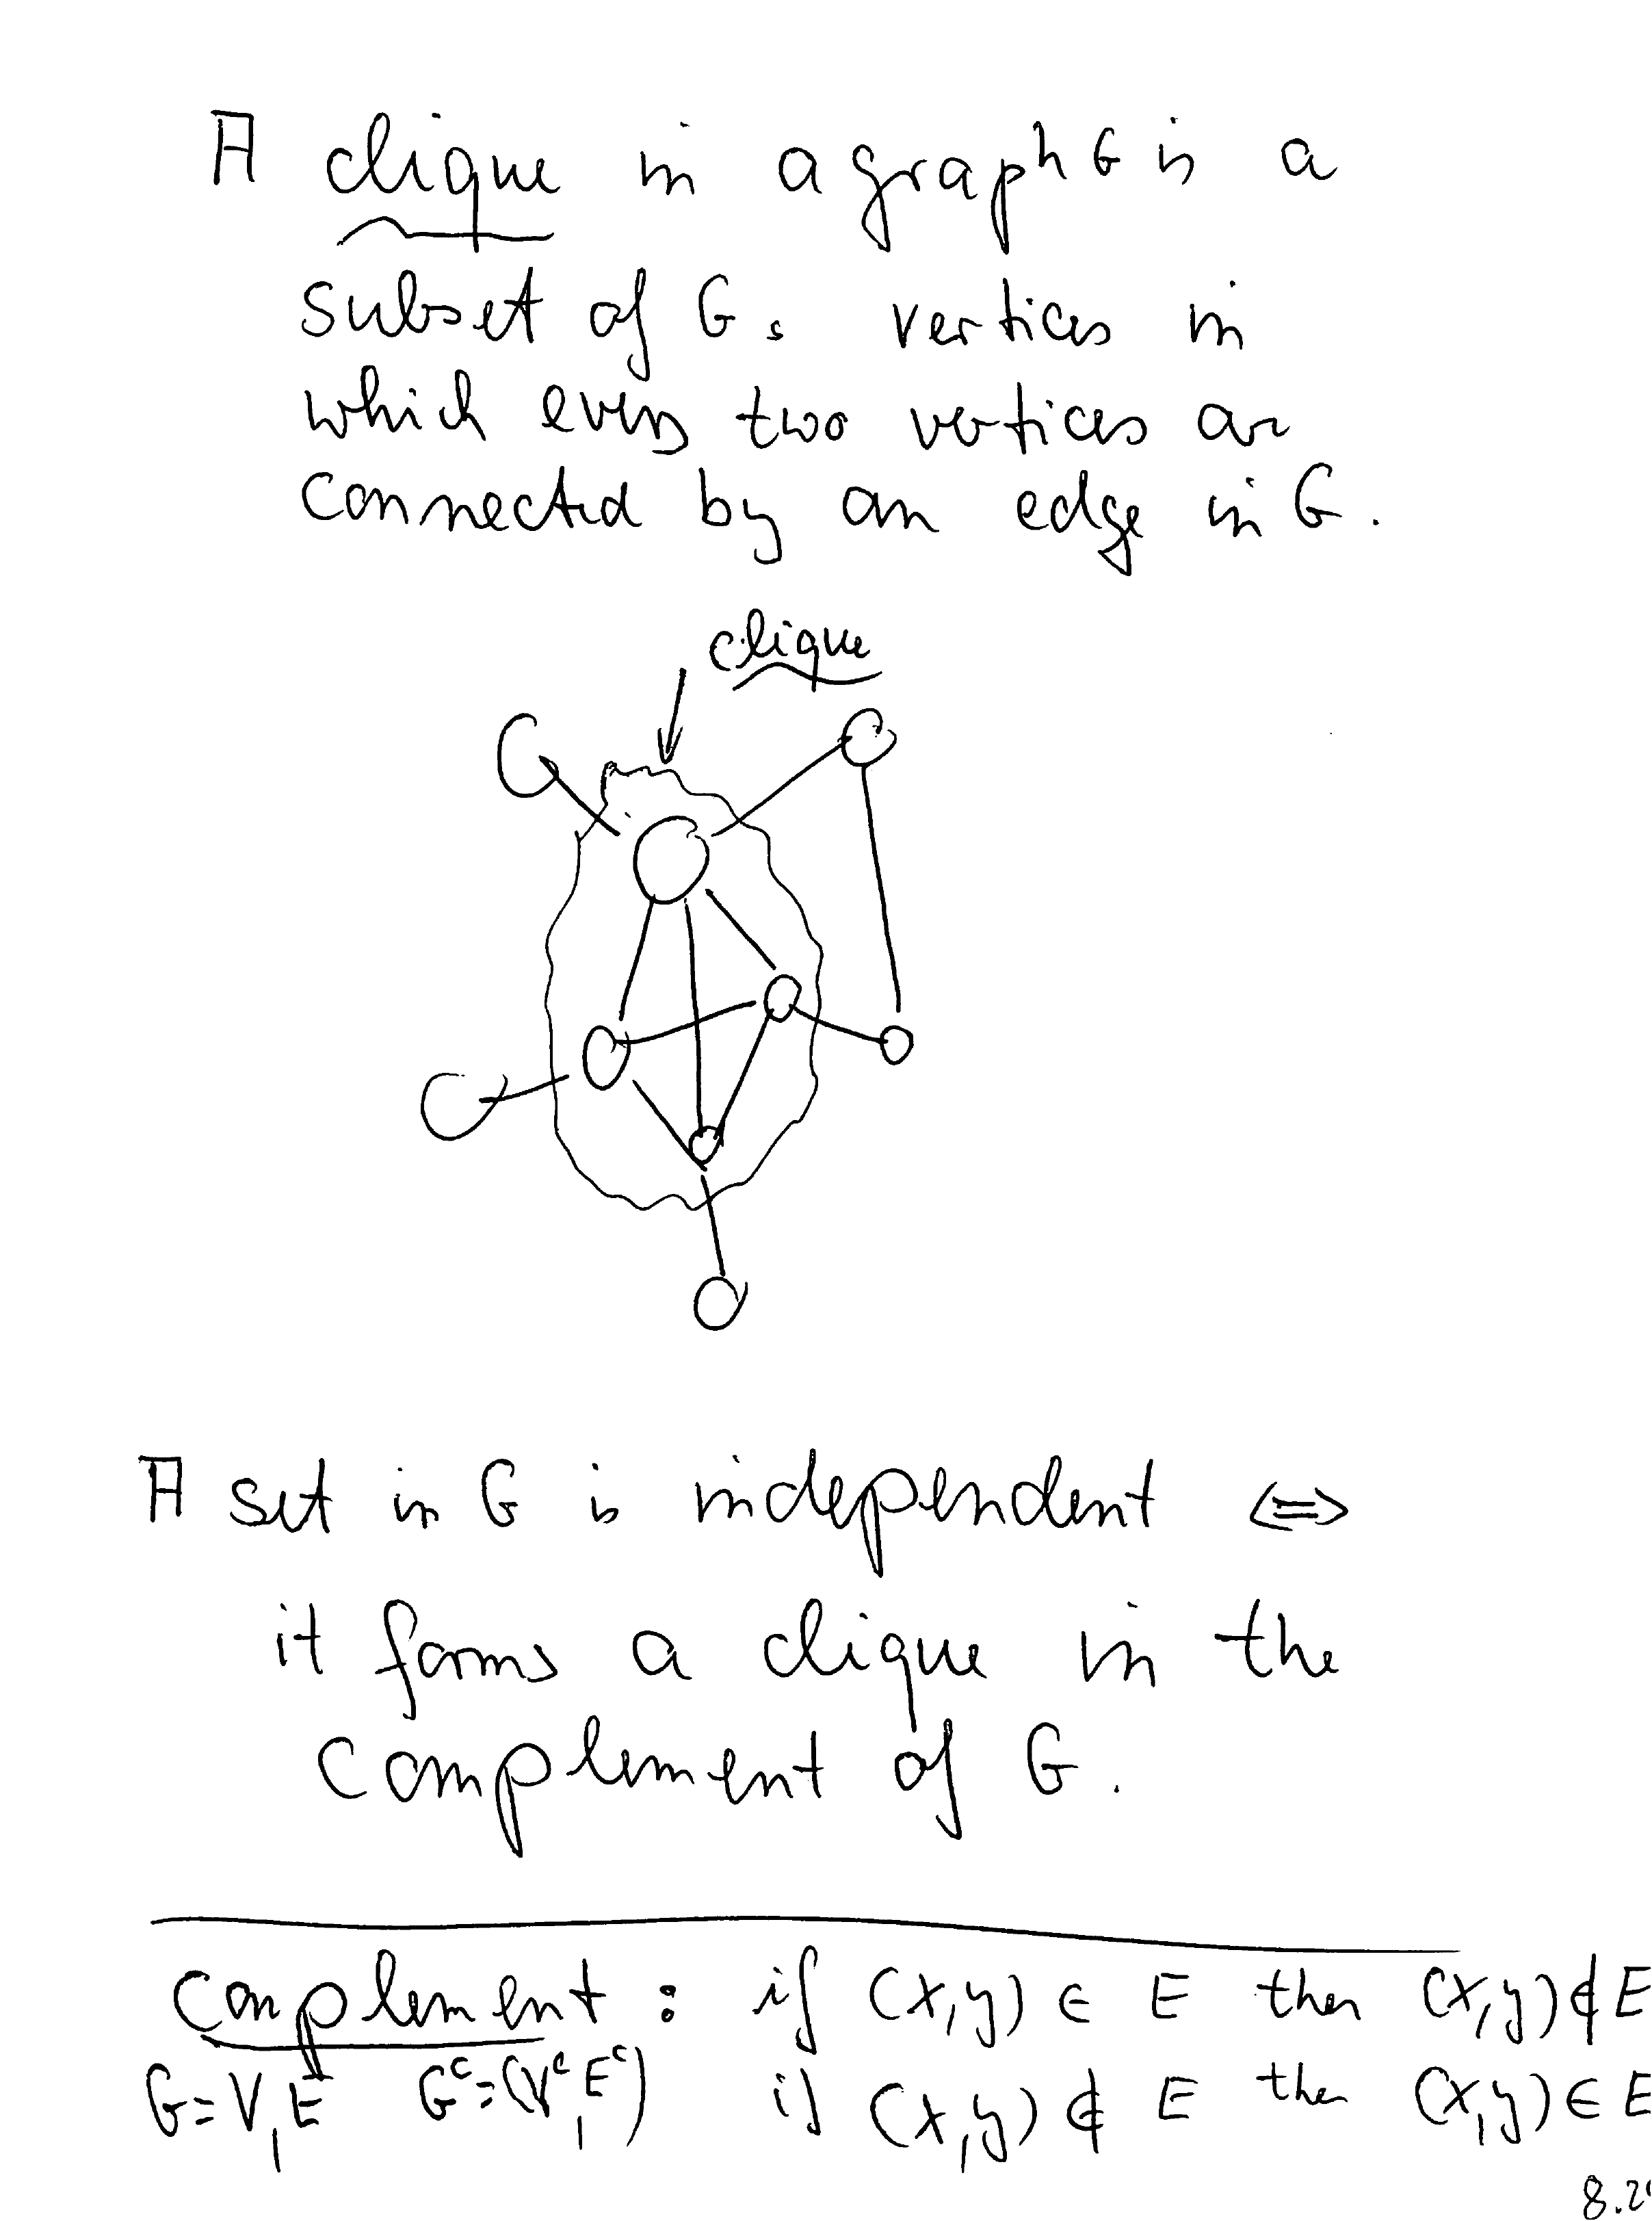 A clique in a graph G is a
subset of G's vertices in
which every two vertices are
connected by an edge in G.
clique
A set in G is independent <=>
it forms a clique in the
complement of G.
complement : if (x,y) ∈ E then (x,y) ∉ E
G=V,E G^c=(V^c,E^c) if (x,y) ∉ E then (x,y) ∈ E